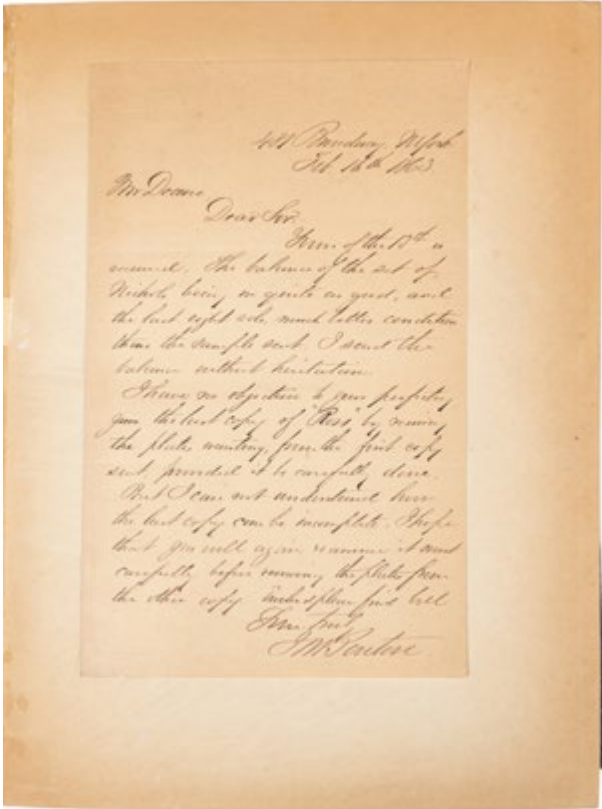 Broadway N York
Feb 16th 1863
Mr Deane
Dear Sir
of the 13th is
received. The balance of the set of
Nichols being in quite as good, and
the last eight vols, much better condition
than the sample sent I send the
balance without hesitation.
I have no objection to your perfecting
your the last copy of "Rees" by removing
the plates wanting from the first copy
sent, provided it be carefully done.
But I can not understand how
the last copy can be incomplete. I hope
that you will again examine it most
carefully before removing the plates from
the other copy please find bill